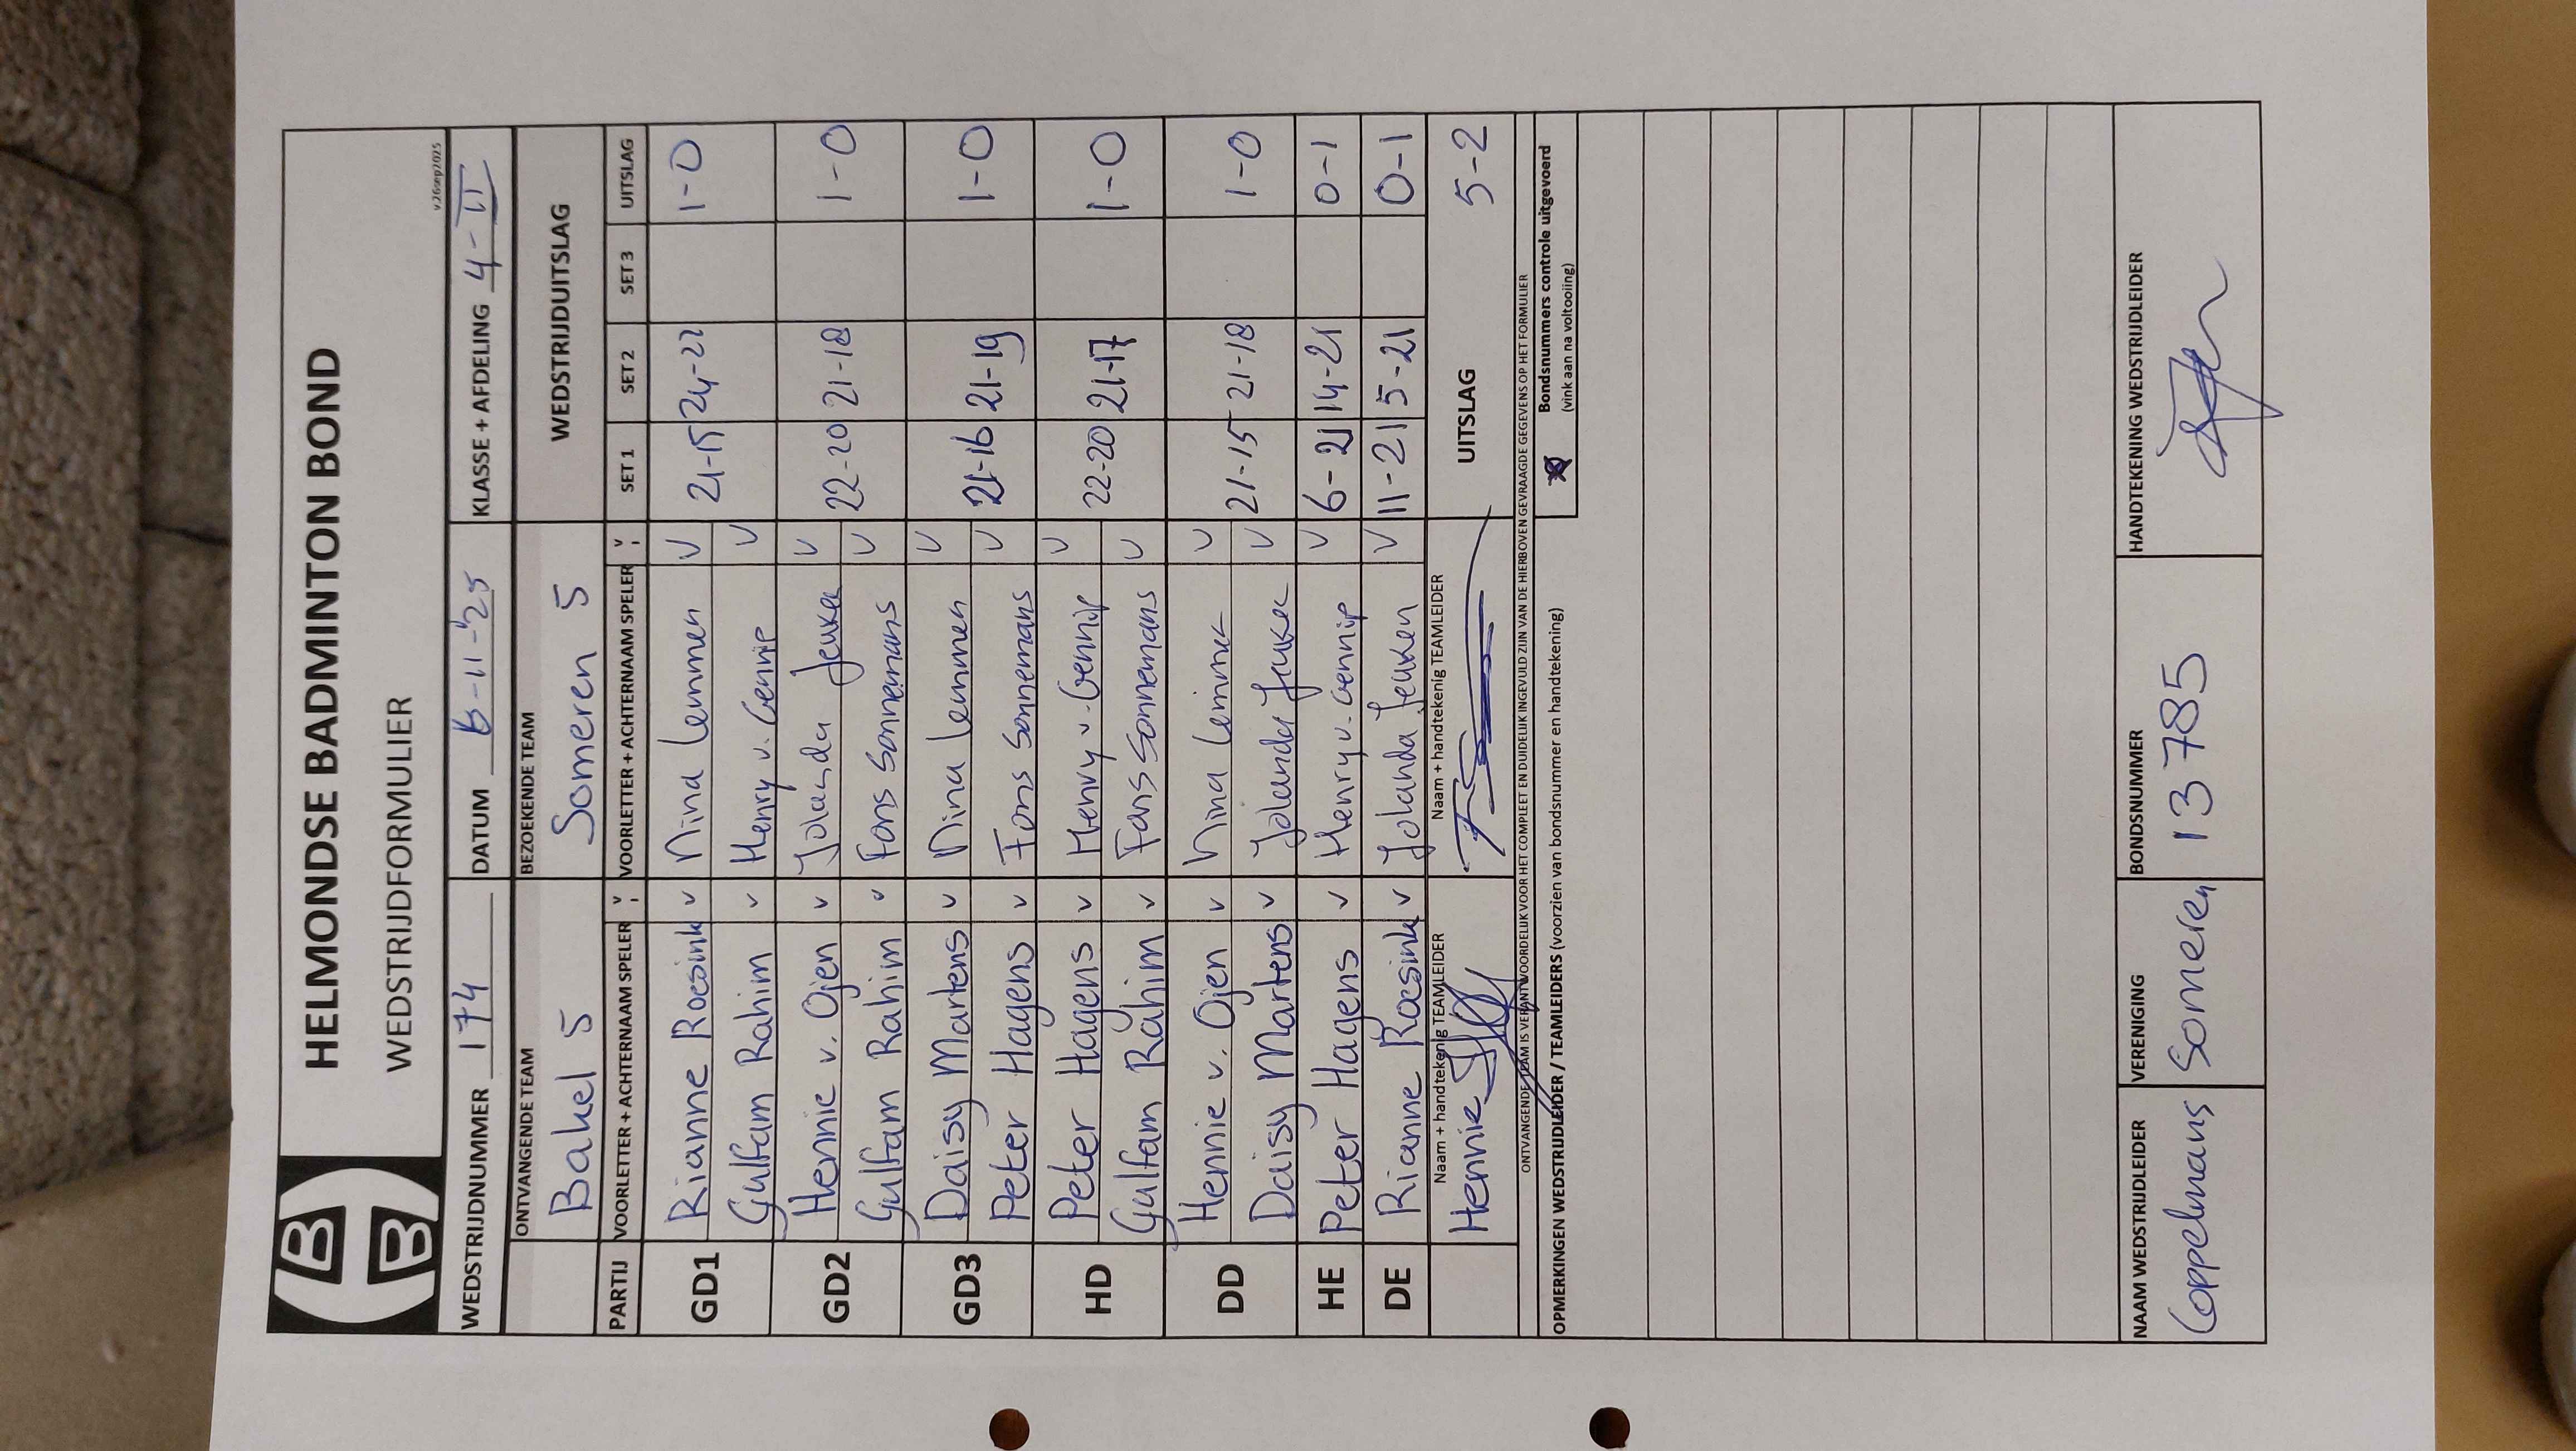 HELMONDSE BADMINTON BOND
WEDSTRIJDFORMULIER
v.26sep2025
WEDSTRIJDNUMMER 174 DATUM 6-11-'25 KLASSE + AFDELING 4-II
ONTVANGENDE TEAM BEZOEKENDE TEAM WEDSTRIJDUITSLAG
Bakel 5 Someren 5
PARTIJ VOORLETTER + ACHTERNAAM SPELER V; VOORLETTER + ACHTERNAAM SPELER V; SET 1 SET 2 SET 3 UITSLAG
GD1 Rianne Roesink v Nina Lemmen v 21-15 24-22 1-0
Gulfam Rahim v Henry v. Gennip v
GD2 Hennie v. Ojen v Jolanda Jeuken v 22-20 21-18 1-0
Gulfam Rahim v Fons Sonnemans v
GD3 Daisy Martens v Nina Lemmen v 21-16 21-19 1-0
Peter Hagens v Fons Sonnemans v
HD Peter Hagens v Henry v. Gennip v 22-20 21-17 1-0
Gulfam Rahim v Fons Sonnemans v
DD Hennie v. Ojen v Nina Lemmen v 21-15 21-18 1-0
Daisy Martens v Jolanda Jeuken v
HE Peter Hagens v Henry v. Gennip v 6-21 14-21 0-1
DE Rianne Roesink v Jolanda Jeuken v 11-21 5-21 0-1
Naam + handtekenig TEAMLEIDER Naam + handtekenig TEAMLEIDER
Hennie UITSLAG 5-2
ONTVANGENDE TEAM IS VERANTWOORDELIJK VOOR HET COMPLEET EN DUIDELIJK INGEVULD ZIJN VAN DE HIERBOVEN GEVRAAGDE GEGEVENS OP HET FORMULIER
OPMERKINGEN WEDSTRIJDLEIDER / TEAMLEIDERS (voorzien van bondsnummer en handtekening) Bondsnummers controle uitgevoerd
(vink aan na voltooiing)
NAAM WEDSTRIJDLEIDER VERENIGING BONDSNUMMER HANDTEKENING WEDSTRIJDLEIDER
Coppelmans Someren 13785